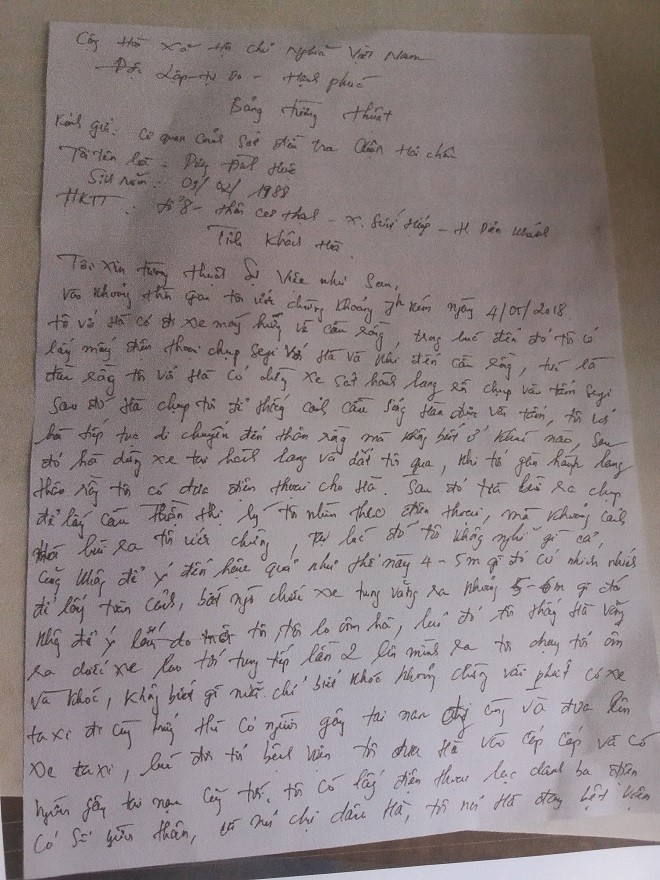 Cộng Hoà Xã Hội Chủ Nghĩa Việt Nam
Độc Lập - Tự Do - Hạnh phúc
Bảng tường thuật
Kính gửi: Cơ quan Cảnh Sát điều tra Quận Hải Châu
Tôi tên là:
Sinh năm: 09/02/1988
HKTT: tổ 8 - thôn - X. Suối Hiệp - H Diên Khánh
Tỉnh Khánh Hoà
Tôi xin tường thuật Sự Việc như Sau,
vào khoảng thời gian tôi ước chừng khoảng 7h kém ngày 4/05/2018
tôi và Hà có đi xe máy hướng về cầu rồng, trong lúc đến đó tôi có
lấy máy điện thoại chụp Segi với Hà và khi đến cầu rồng, tức là
đầu rồng tôi và Hà có dừng xe sát hành lang rồi chụp vài tấm Segi
Sau đó Hà chụp tôi để thấy cảnh cầu Sông Hàn được vài tấm, tôi và
hà tiếp tục di chuyển đến thân rồng mà không biết ở khúc nào, Sau
đó hà dừng xe tại hành lang và dắt tôi qua, khi tới gần hành lang
thân rồng tôi có đưa điện thoại cho Hà. Sau đó Hà lùi ra chụp
để lấy cầu Thuận thì tôi nhìn theo điện thoại, mà khoảng cách
Hà lùi ra tôi ước chừng, lúc đó tôi không nghĩ gì cả,
cũng không để ý đến quá như thế này 4 - 5m gì đó có nhích nhích
để lấy toàn cảnh, bất ngờ chiếc xe tung văng ra khoảng 5-6m gì đó
không để ý lắm do tôi, tôi lo ôm hà, lúc đó tôi thấy Hà văng
ra chiếc xe lao tới tung tiếp lần 2 lên mình ra tôi chạy tới ôm
và khóc, không biết gì nữa chỉ biết khóc khoảng chừng vài phút có xe
taxi đi có người gây tai nạn cùng và đưa lên
xe taxi, lúc đó tới bệnh viện tôi đưa Hà vào cấp cấp và có
người gây tai nạn cùng tới, tôi có lấy điện thoại lục danh bạ điện
có Số người thân, và nói chị dâu Hà, tôi nói Hà đang bệnh viện